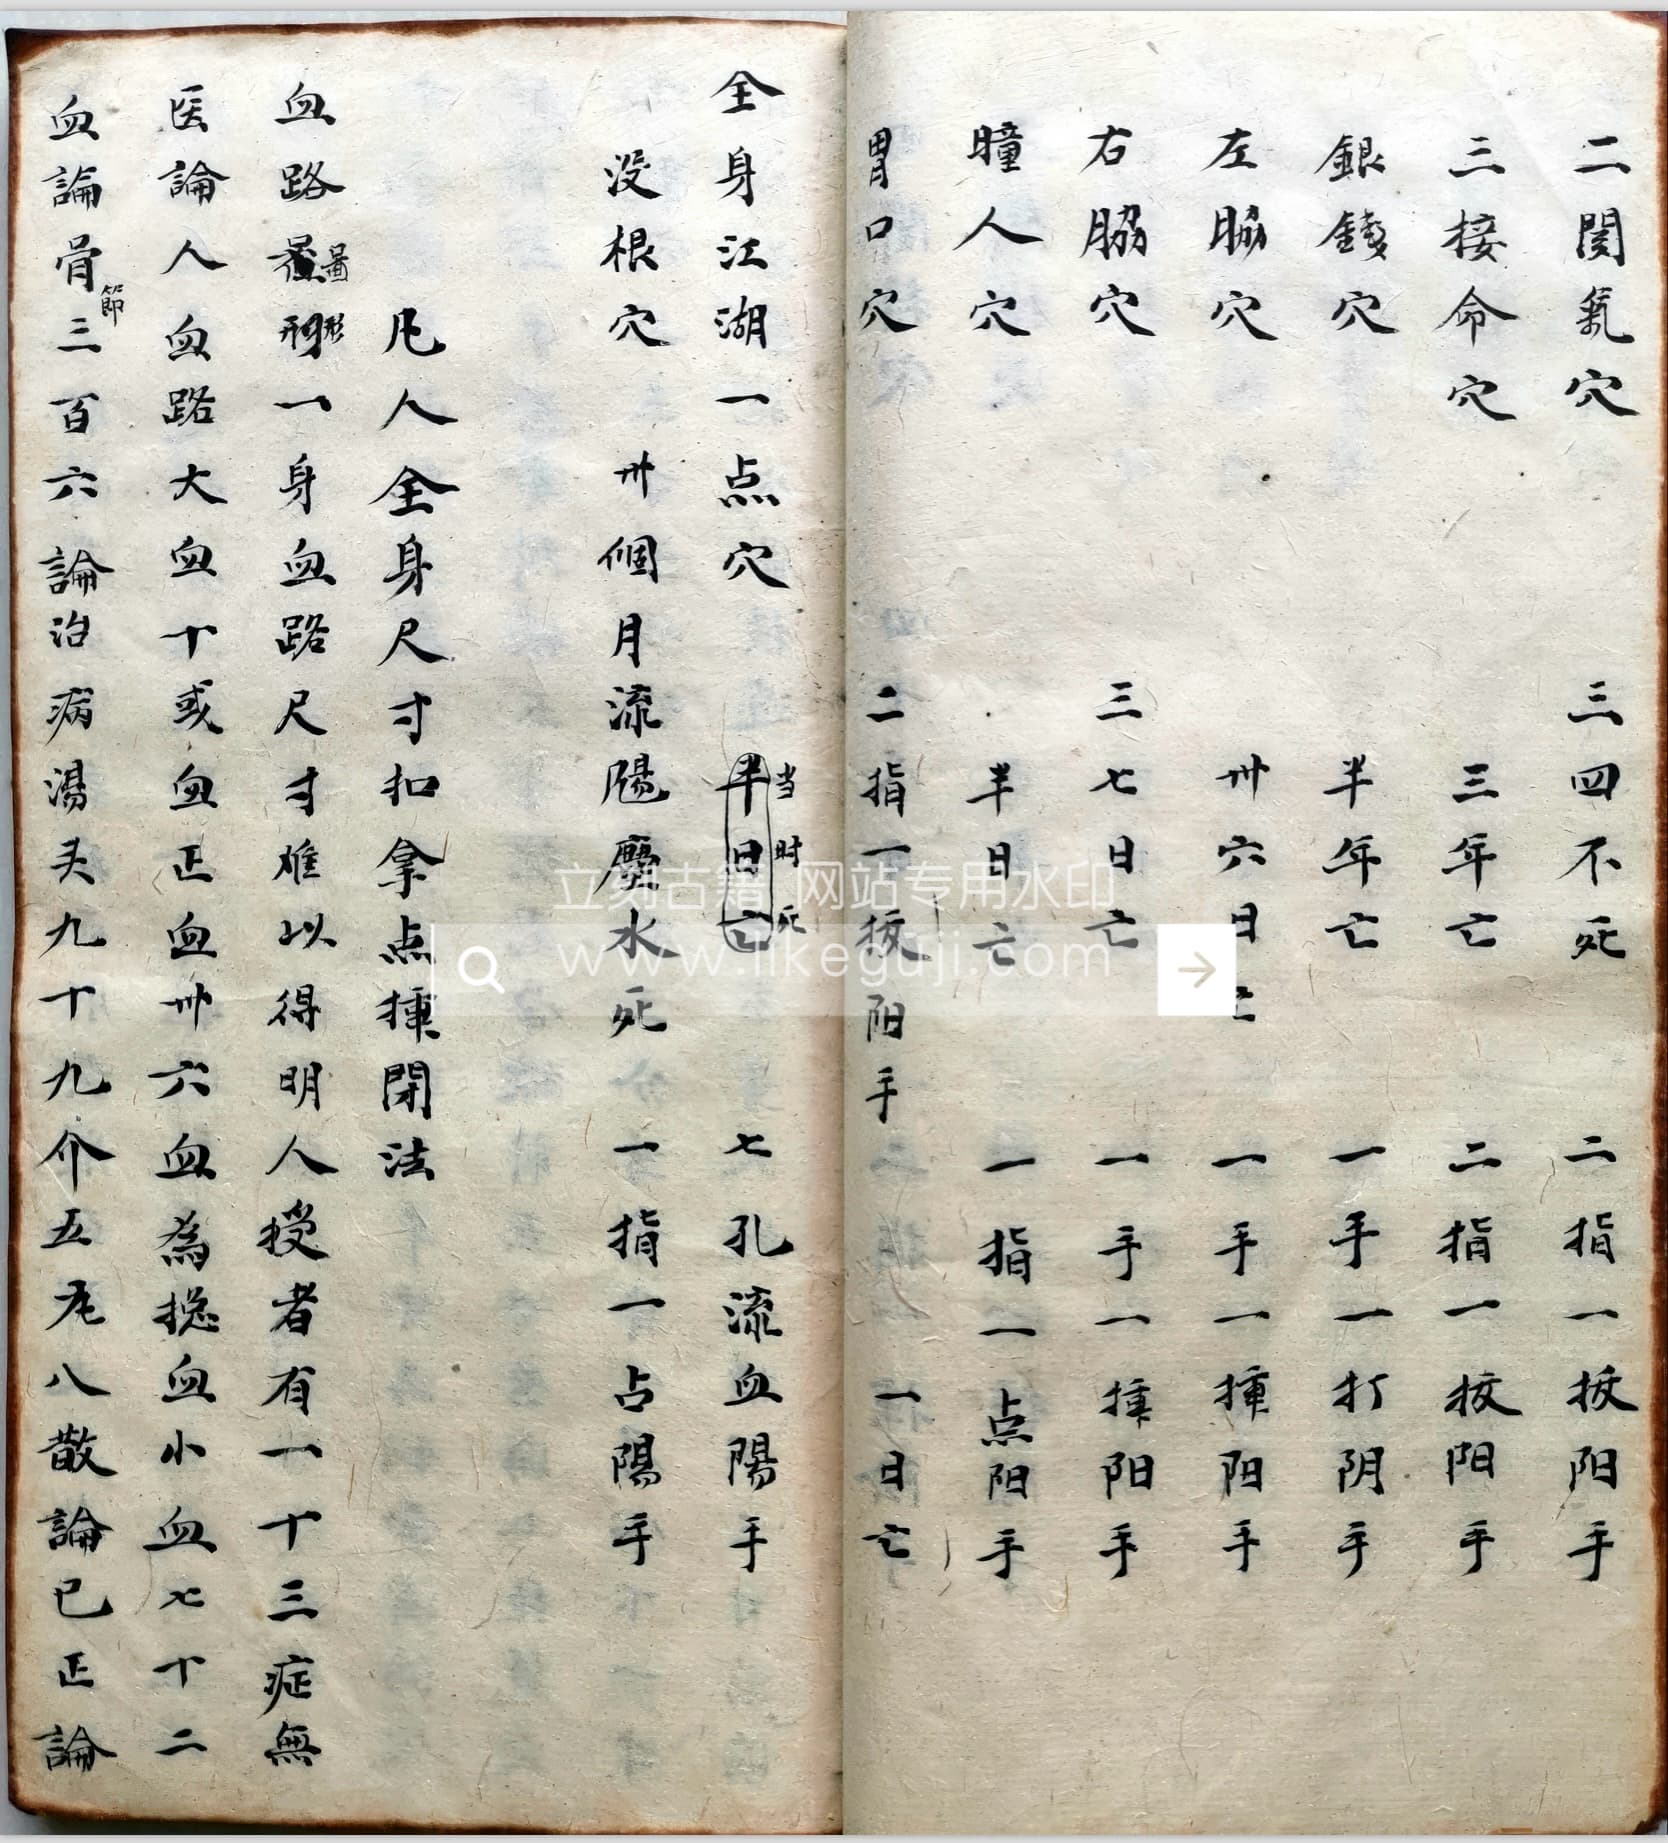 二関氣穴 三四不死 二指一扳阳手
三接命穴 三年亡 二指一扳阳手
銀錢穴 半年亡 一手一打阴手
左脇穴 卅六日亡 一手一揰阳手
右脇穴 三七日亡 一手一揰阳手
瞳人穴 半日亡 一指一点阳手
胃口穴 二指一扳阳手 一日亡
全身江湖一点穴 半日亡 七孔流血陽手
当时死
没根穴 卅個月流水死 一指一占陽手
凡人全身尺寸扣拿点揰閉法
血路一身血路尺寸难以得明人授者有一十三症無
圖形
医論人血路大血十或血正血卅六血為捴血小血七十二
血論骨三百六論治病湯头九十九介五八散論已正論
節
立刻古籍 网站专用水印
www.likeguji.com